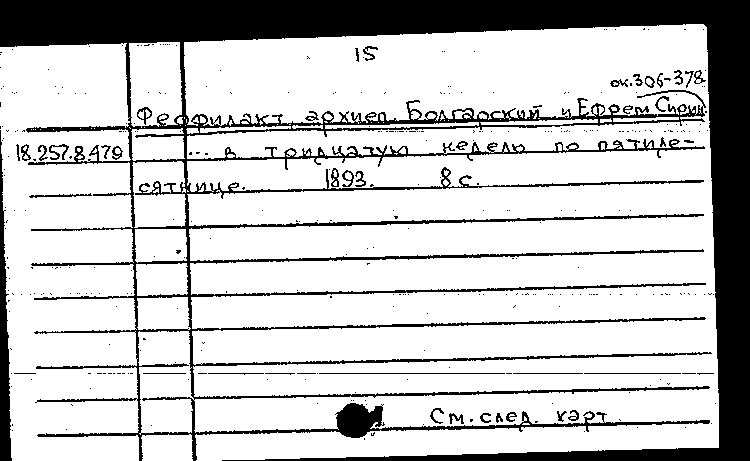 15
ок.306-378
Феофилакт, архиеп. Болгарский и Ефрем Сирин
18.257.8.479 ... в тридцатую неделю по пятиде-
сятнице. 1893. 8 с.
См. след. карт.